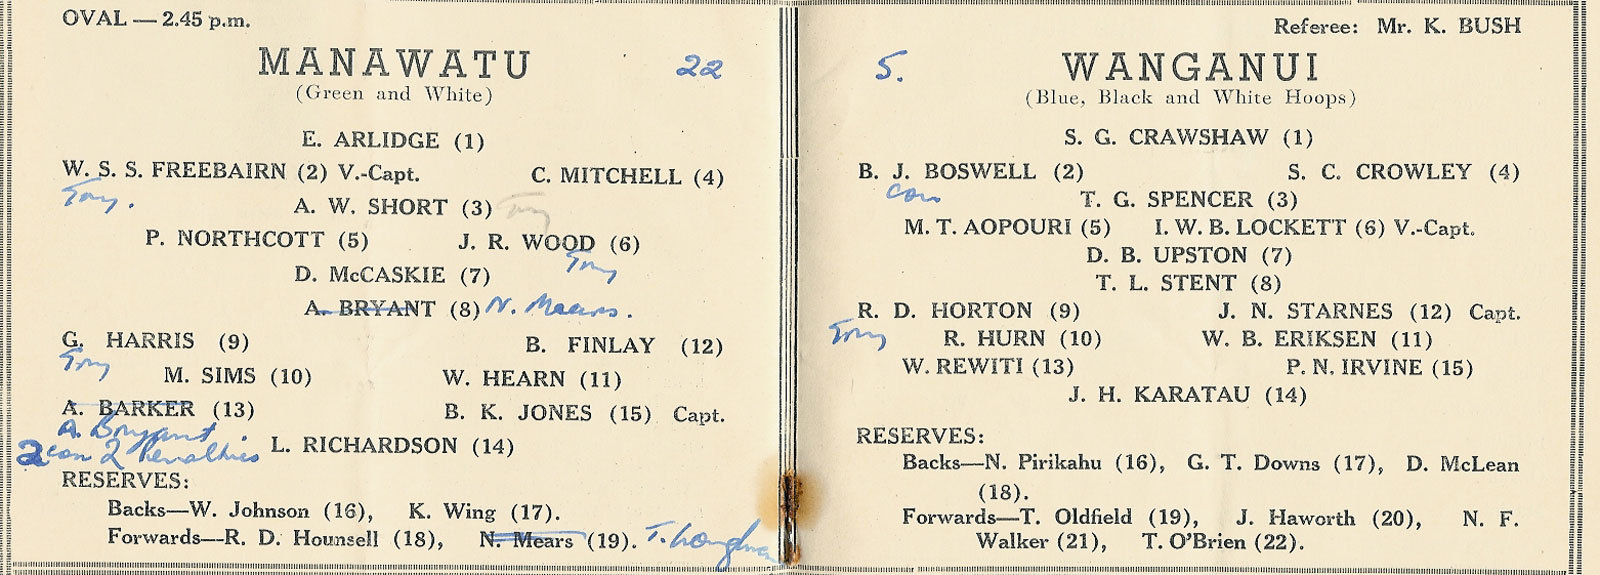 OVAL — 2.45 p.m.
MANAWATU 22
(Green and White)
E. ARLIDGE (1)
W. S. S. FREEBAIRN (2) V.-Capt. C. MITCHELL (4)
A. W. SHORT (3)
P. NORTHCOTT (5) J. R. WOOD (6)
D. McCASKIE (7)
A. BRYANT (8) N. Mears.
G. HARRIS (9) B. FINLAY (12)
M. SIMS (10) W. HEARN (11)
A. BARKER (13) B. K. JONES (15) Capt.
A. Bryant.
L. RICHARDSON (14)
2 con 2 Penalties
RESERVES:
Backs—W. Johnson (16), K. Wing (17).
Forwards—R. D. Hounsell (18), N. Mears (19).
Referee: Mr. K. BUSH
5. WANGANUI
(Blue, Black and White Hoops)
S. G. CRAWSHAW (1)
B. J. BOSWELL (2) S. C. CROWLEY (4)
con
T. G. SPENCER (3)
M. T. AOPOURI (5) I. W. B. LOCKETT (6) V.-Capt.
D. B. UPSTON (7)
T. L. STENT (8)
R. D. HORTON (9) J. N. STARNES (12) Capt.
R. HURN (10) W. B. ERIKSEN (11)
W. REWITI (13) P. N. IRVINE (15)
J. H. KARATAU (14)
RESERVES:
Backs—N. Pirikahu (16), G. T. Downs (17), D. McLean
(18).
Forwards—T. Oldfield (19), J. Haworth (20), N. F.
Walker (21), T. O'Brien (22).